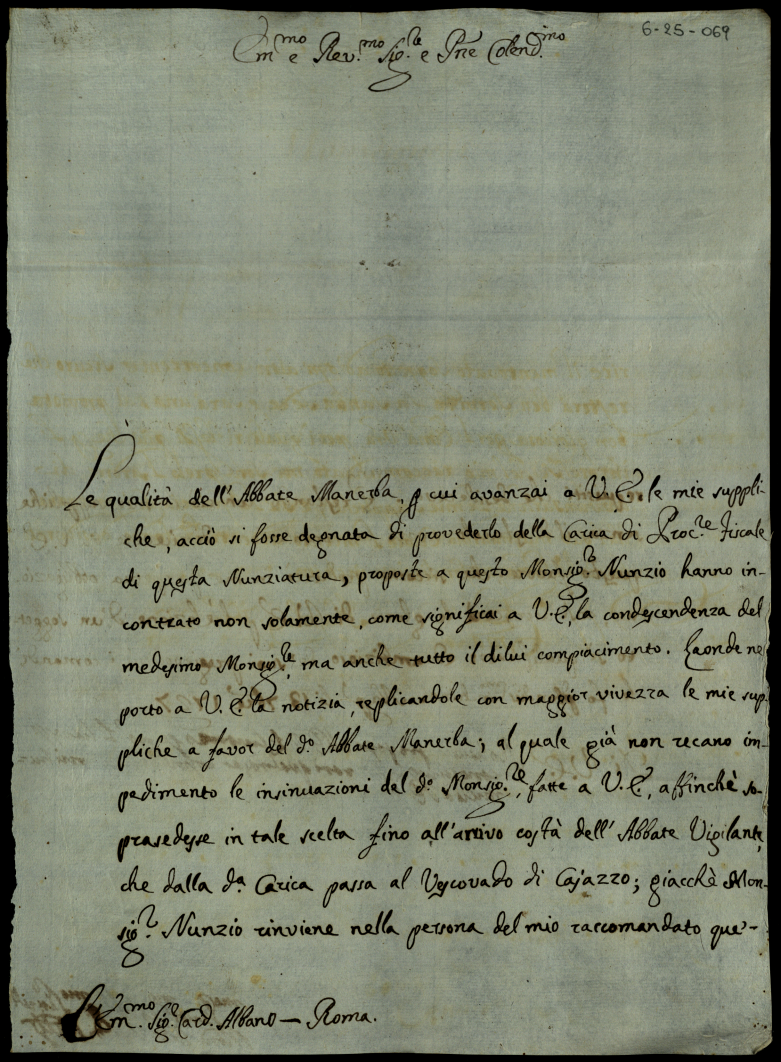 6-25-069
Em.mo e Rev.mo Sig.re e Pne Colend.mo
Le qualità dell'Abbate Manerba, p cui avanzai a V. E. le mie suppli-
che, acciò si fosse degnata di provederlo della Carica di Proc.re Fiscale
di questa Nunziatura, proposte a questo Monsig.r Nunzio hanno in-
contrato non solamente, come significai a V. E., la condescendenza del
medesimo Monsig.re, ma anche tutto il dilui compiacimento. Laonde ne
porto a V. E. la notizia, replicandole con maggior vivezza le mie sup-
pliche a favor del d.o Abbate Manerba; al quale già non recano im-
pedimento le insinuazioni del d.o Monsig.re, fatte a V. E., affinchè so-
prasedesse in tale scelta fino all'arrivo costà dell'Abbate Vigilante,
che dalla d.a Carica passa al Vescovado di Cajazzo; giacchè Mon-
sig.r Nunzio rinviene nella persona del mio raccomandato que'-
Em.mo Sig.r Card. Albano — Roma.